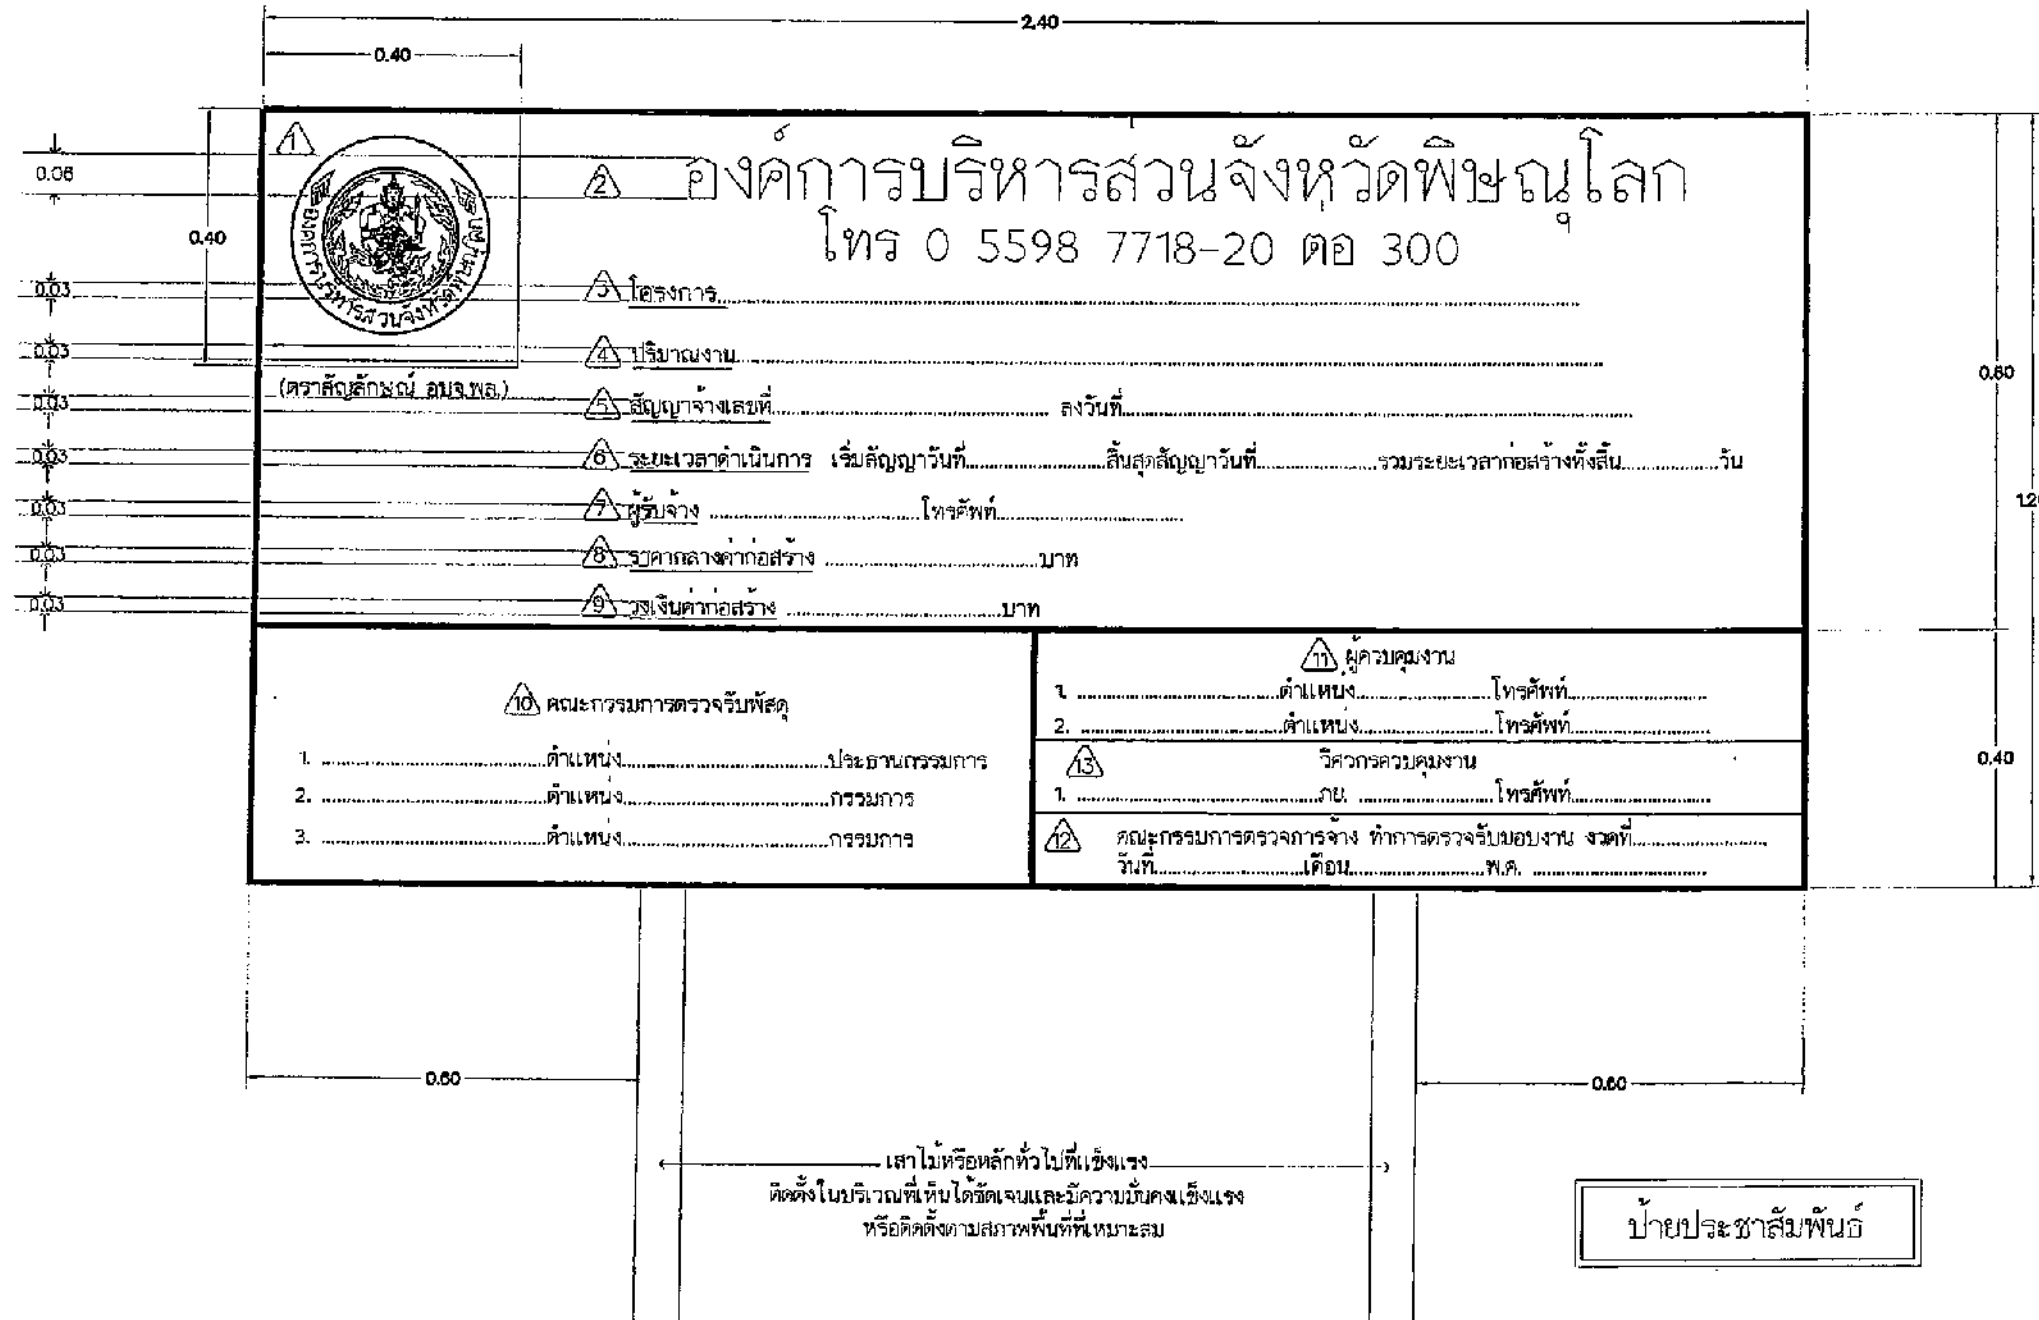 2.40
0.40
1
องค์การบริหารส่วนจังหวัดพิษณุโลก
0.06
2 องค์การบริหารส่วนจังหวัดพิษณุโลก
0.40
โทร 0 5598 7718-20 ต่อ 300
0.03
3 โครงการ
0.03
4 ปริมาณงาน
0.80
(ตราสัญลักษณ์ อบจ.พล.)
0.03
5 สัญญาจ้างเลขที่ ลงวันที่
0.03
6 ระยะเวลาดำเนินการ เริ่มสัญญาวันที่ สิ้นสุดสัญญาวันที่ รวมระยะเวลาก่อสร้างทั้งสิ้น วัน
0.03
7 ผู้รับจ้าง โทรศัพท์
0.03
8 ราคากลางค่าก่อสร้าง บาท
0.03
9 วงเงินค่าก่อสร้าง บาท
10 คณะกรรมการตรวจรับพัสดุ
1. ตำแหน่ง ประธานกรรมการ
2. ตำแหน่ง กรรมการ
3. ตำแหน่ง กรรมการ
11 ผู้ควบคุมงาน
1. ตำแหน่ง โทรศัพท์
2. ตำแหน่ง โทรศัพท์
13 วิศวกรควบคุมงาน
1. ภย. โทรศัพท์
12 คณะกรรมการตรวจการจ้าง ทำการตรวจรับมอบงาน งวดที่
วันที่ เดือน พ.ศ.
0.40
0.60
0.60
เสาไม้หรือหลักทั่วไปที่แข็งแรง
ติดตั้งในบริเวณที่เห็นได้ชัดเจนและมีความมั่นคงแข็งแรง
หรือติดตั้งตามสภาพพื้นที่ที่เหมาะสม
ป้ายประชาสัมพันธ์